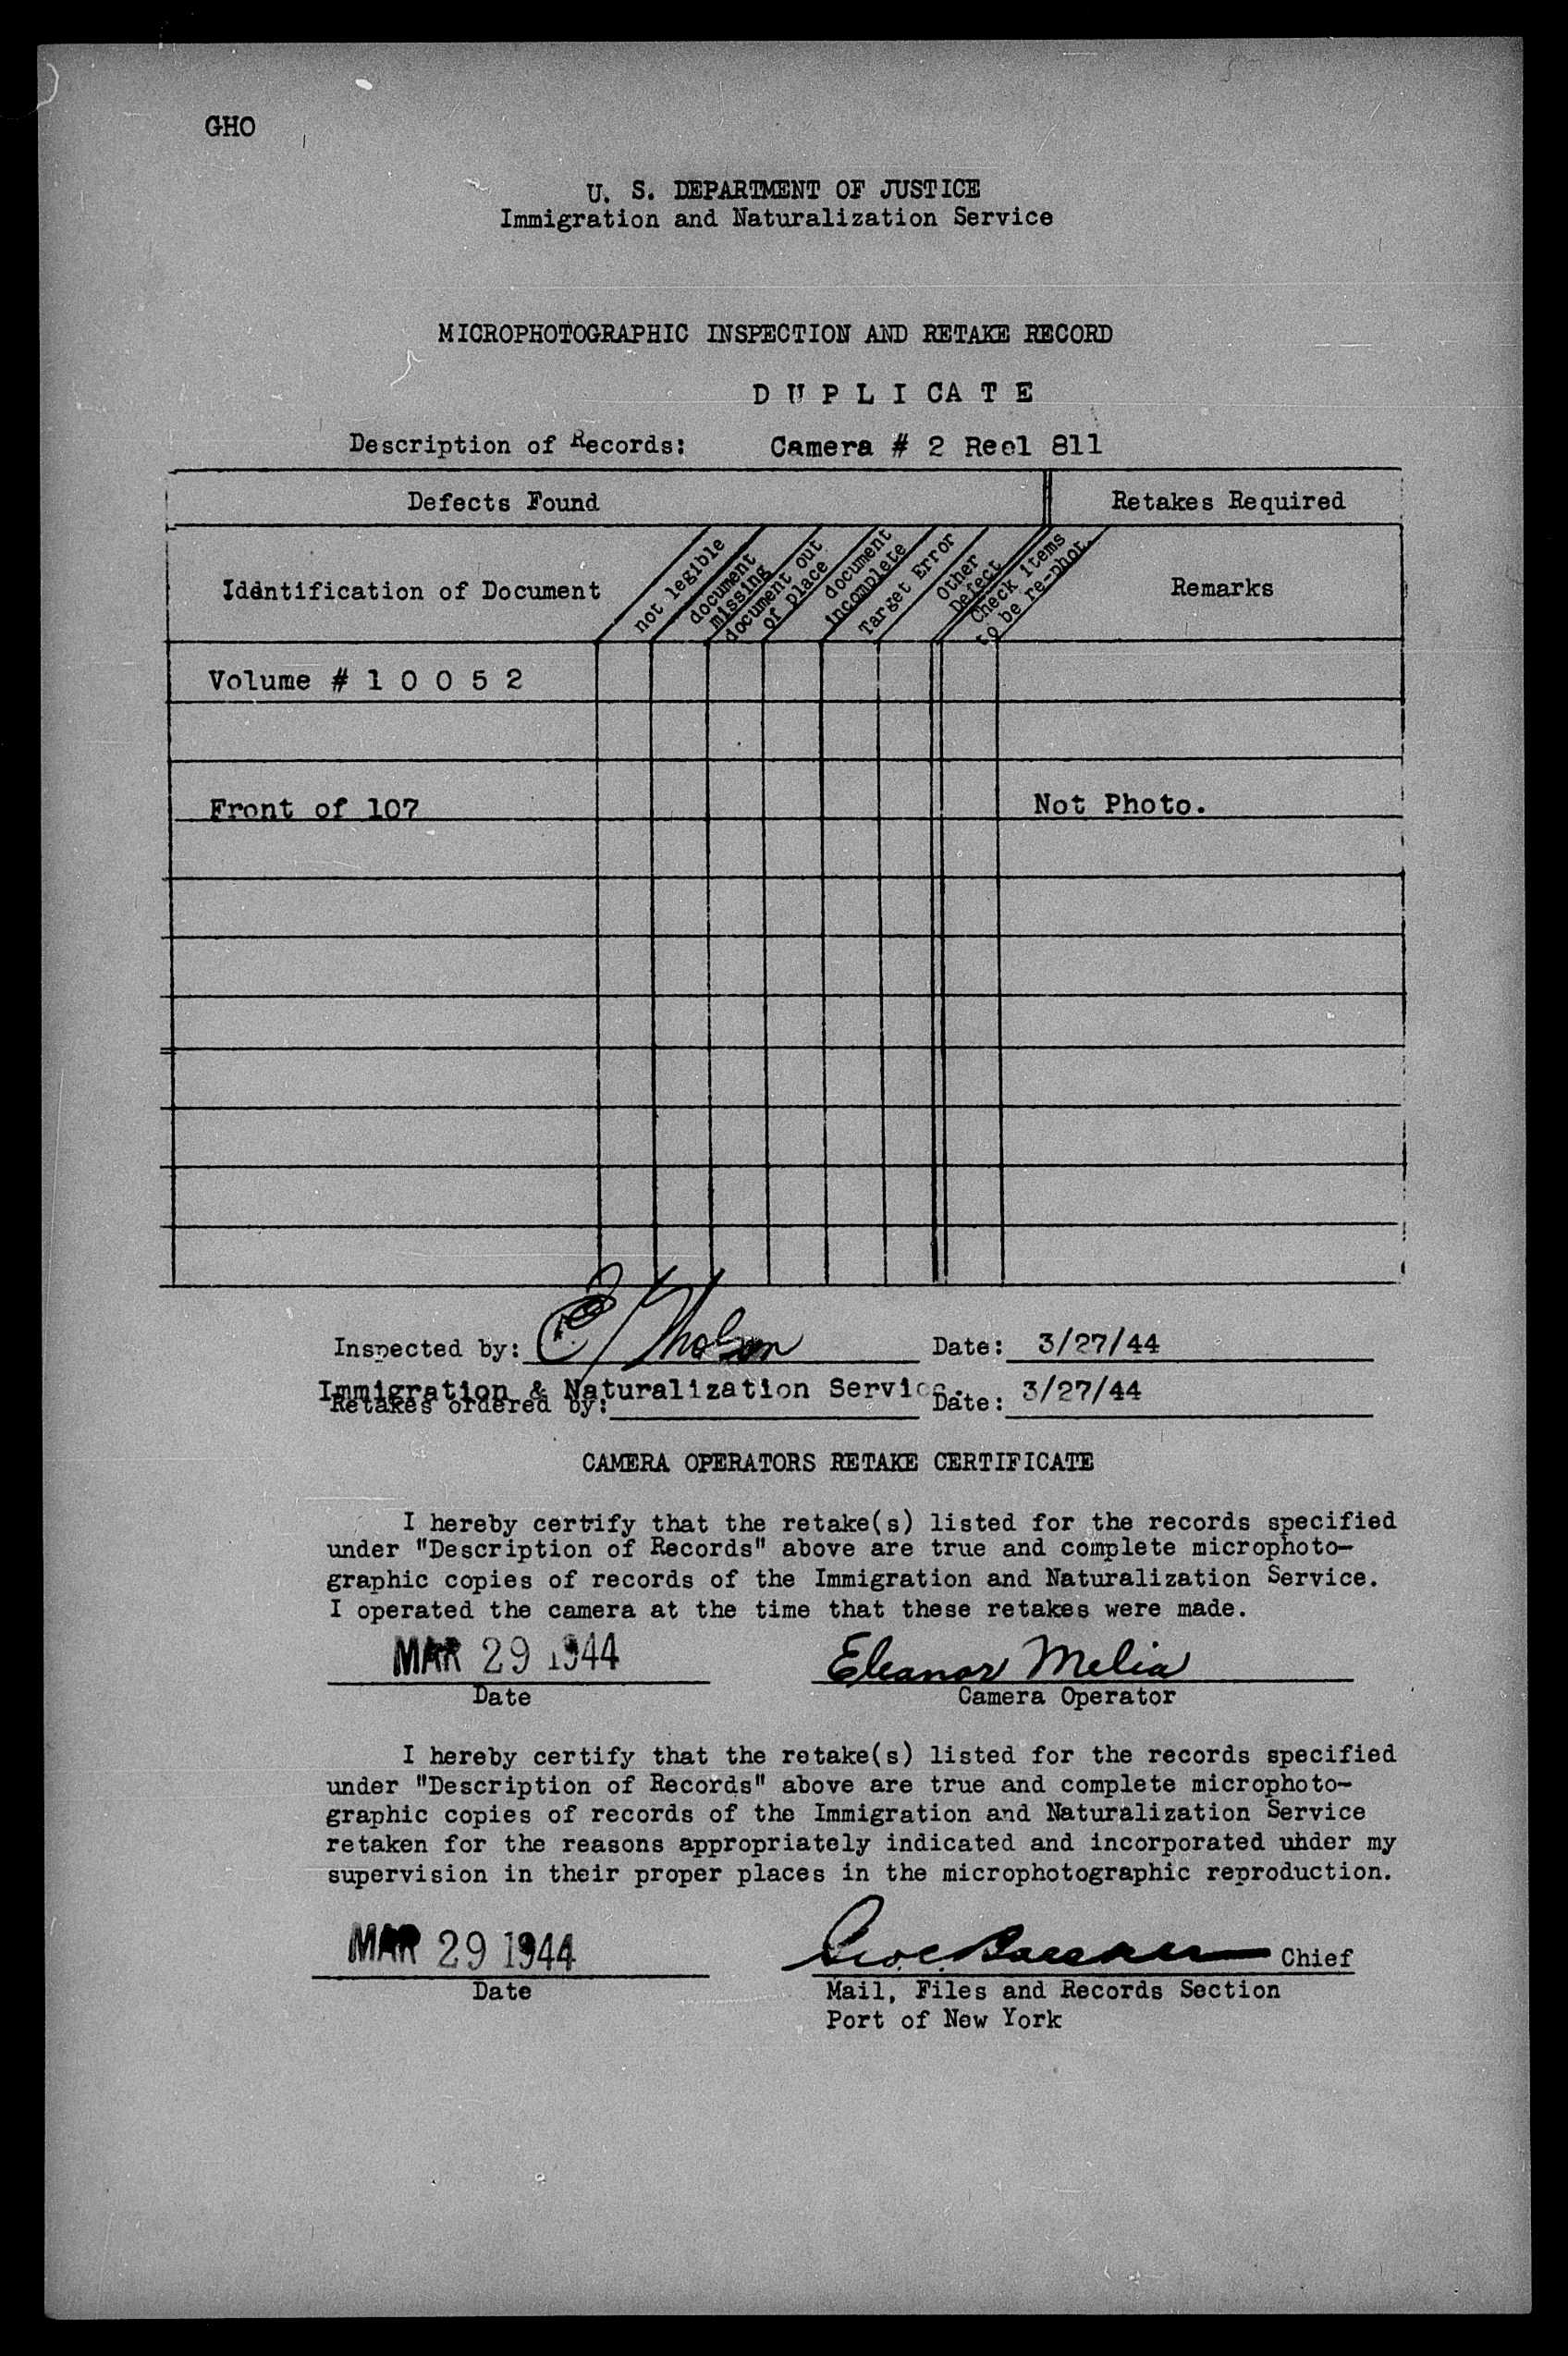 GHO
U. S. DEPARTMENT OF JUSTICE
Immigration and Naturalization Service
MICROPHOTOGRAPHIC INSPECTION AND RETAKE RECORD
D U P L I CA T E
Description of Records: Camera # 2 Reel 811
Defects Found Retakes Required
Identification of Document
not legible
document
missing
document out
of place
document
incomplete
Target Error
Other
Defect
Check items
to be re-phot.
Remarks
Volume # 1 0 0 5 2
Front of 107 Not Photo.
Inspected by: Date: 3/27/44
Immigration & Naturalization Service. 3/27/44
Retakes ordered by: Date:
CAMERA OPERATORS RETAKE CERTIFICATE
I hereby certify that the retake(s) listed for the records specified
under "Description of Records" above are true and complete microphoto-
graphic copies of records of the Immigration and Naturalization Service.
I operated the camera at the time that these retakes were made.
MAR 29 1944 Eleanor Melia
Date Camera Operator
I hereby certify that the retake(s) listed for the records specified
under "Description of Records" above are true and complete microphoto-
graphic copies of records of the Immigration and Naturalization Service
retaken for the reasons appropriately indicated and incorporated uhder my
supervision in their proper places in the microphotographic reproduction.
MAR 29 1944 Chief
Date Mail, Files and Records Section
Port of New York